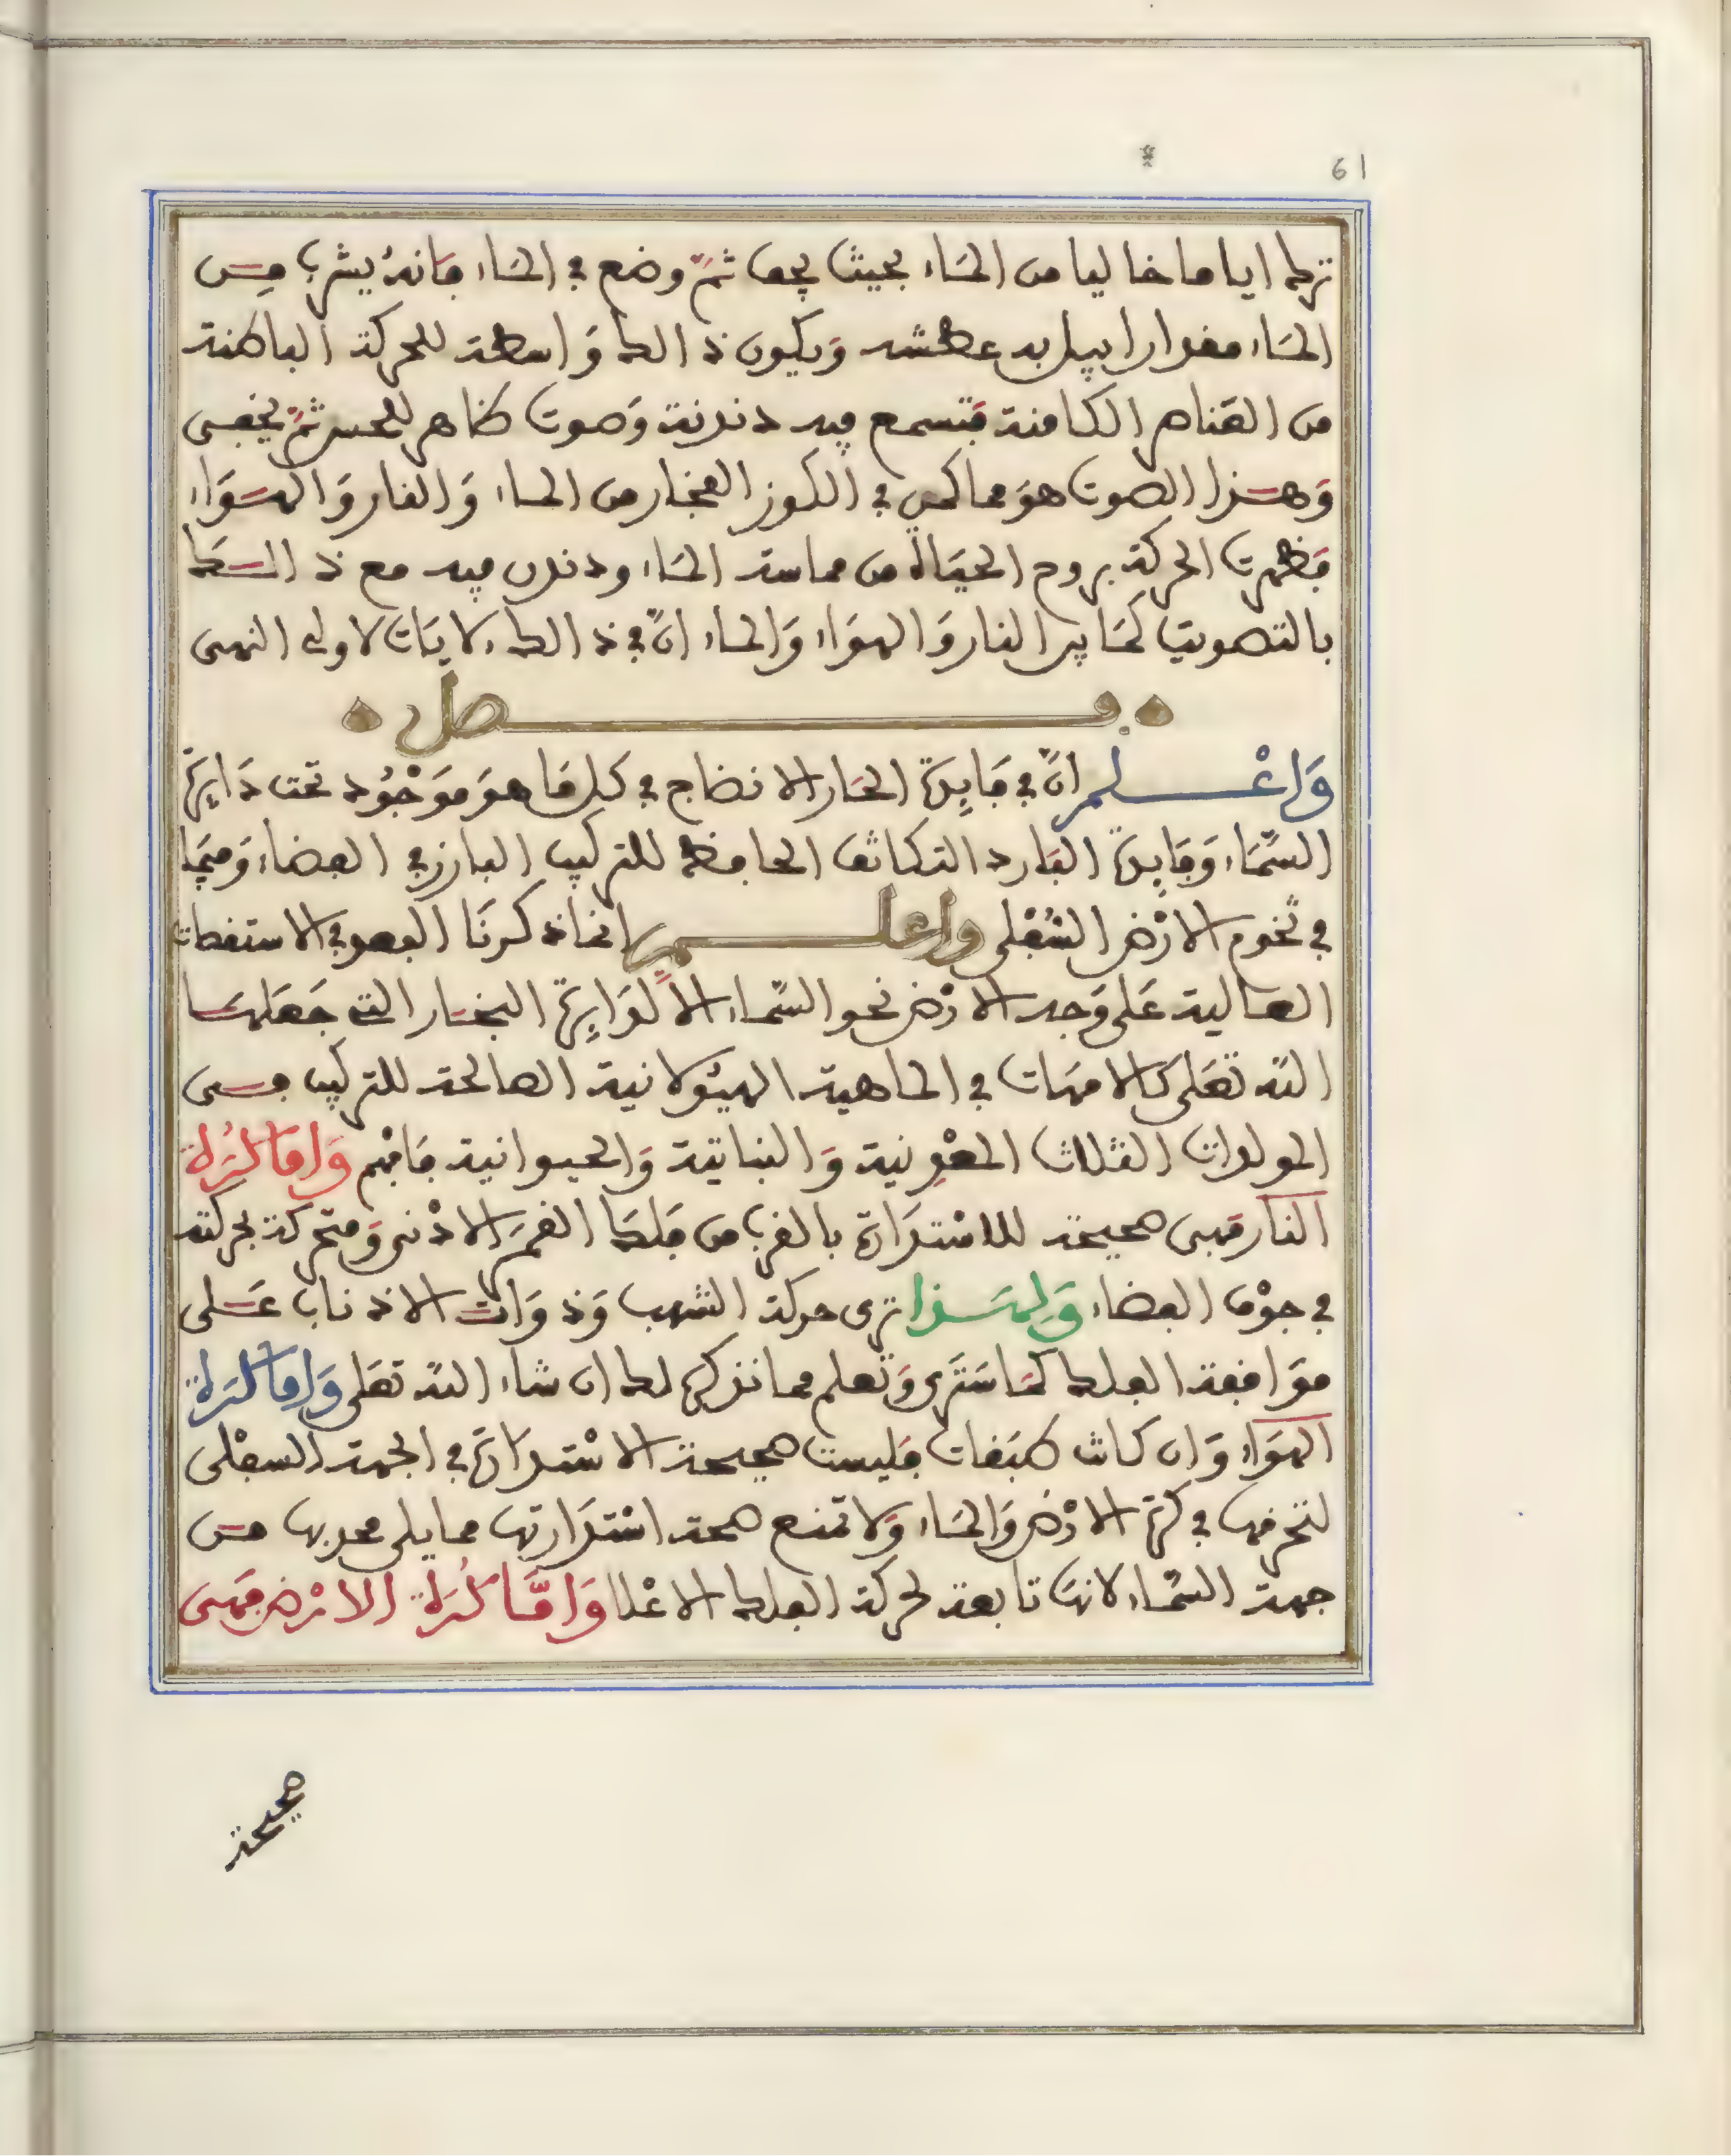 61
ترك اياما خاليا من المَاء بحيث يجف ثمّ وضع في المَاء فانهُ يشرب مِن
المَاء مقدارا يبل به عطشه وَيكون ذالك وَاسطة للحركة الباطنة
من العناصر الكامنة فتسمع فيه دندنة وَصوت ظاهر للحس ثمّ يخفى
وَهذا الصوت هوَ مما كمن في الكوز الفخار من الماء وَالنار وَالهوَاء
فظهرت الحركة بروح الحيَاة من مماسة المَاء ودندن فيه مع ذالك
بالتصويت كمَا بير النار وَالهوَاء وَالماء انّ في ذالك لايَات لاولى النهى
فصل
وَاعْلم انّ في فَايِدة الحَار الانضاج في كل مَا هوَ مَوْجُود تحت دَايِرة
السّمَاء وَفَايِدة البَارد التكاثف الحافظ للتركيب البارز في الفضاء وَميَما
في تخوم الارْض السُّفْلى واعلم انما ذكرنَا الفصو في الاستقطات
العالية عَلى وَجه الارْض نحو السّماء الا لدَايِرة البخار التى جَعَلهَا
الله تعَلى كالامهَات في الماهية الهيُولانية الصالحة للتركيب فسى
المولدات الثلاث المعْدِنية وَالنباتية وَالحيوانية فَافهْم وَامَا كُرَة
النَار فهى صحيحة للاسْتدَارَة بالقرب من فلك القمَر الادْنى وَمتحركة بحركته
في جوْف الفضاء وَلهَذا ترى حركة الشهب وَذوَات الاذناب عَلى
موَافقة الفلك كمَا سَترى وَتعلم مما نذكره لك ان شاء الله تعَلى وَامَا كُرَة
الهوَاء وَان كانت طبَقات فليست صحيحة الاسْتدَارَة في الجهة السفْلى
لتحرفها في كرة الارْض وَالمَاء وَلا تمنع صحة اسْتدَارتها مما يلى محدبها من
جهة السّماء لانهَا تابعة لحركة الفلك الاعْلا وَامَّا كُرَة الارْض فهى
صحيحة